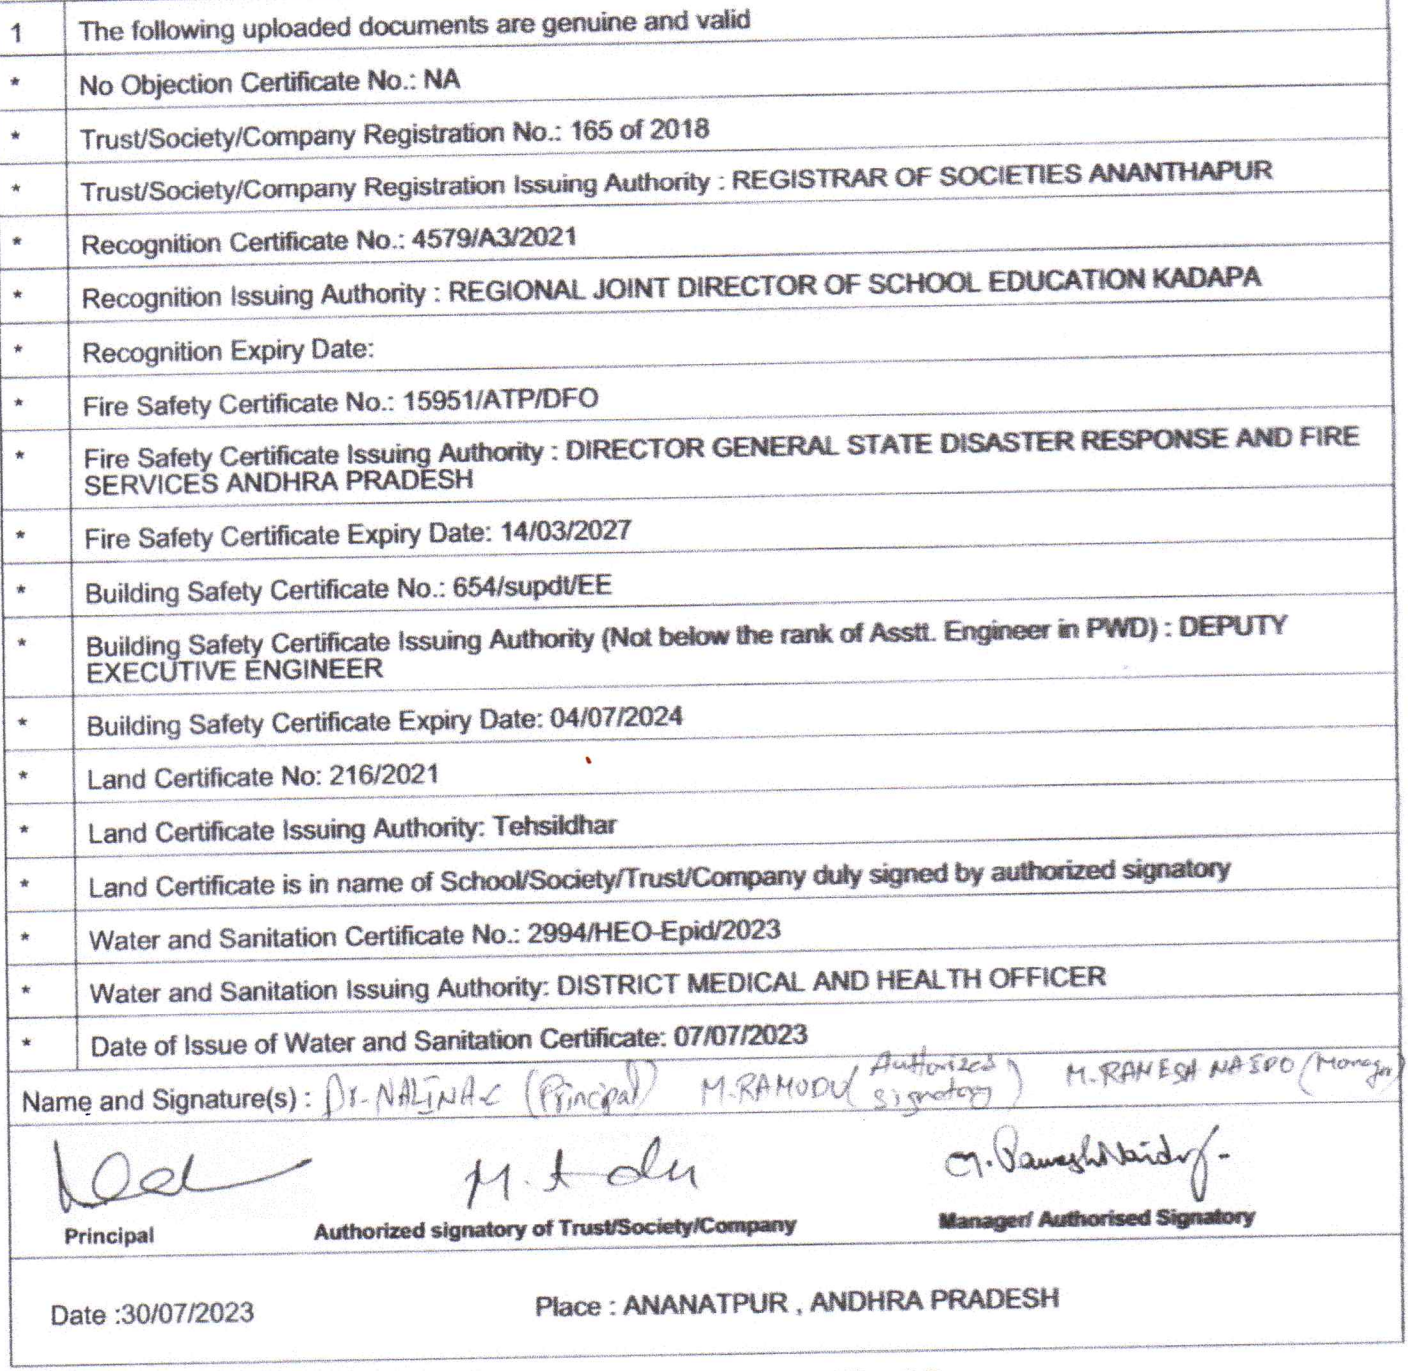 1 The following uploaded documents are genuine and valid
* No Objection Certificate No.: NA
* Trust/Society/Company Registration No.: 165 of 2018
* Trust/Society/Company Registration Issuing Authority : REGISTRAR OF SOCIETIES ANANTHAPUR
* Recognition Certificate No.: 4579/A3/2021
* Recognition Issuing Authority : REGIONAL JOINT DIRECTOR OF SCHOOL EDUCATION KADAPA
* Recognition Expiry Date:
* Fire Safety Certificate No.: 15951/ATP/DFO
* Fire Safety Certificate Issuing Authority : DIRECTOR GENERAL STATE DISASTER RESPONSE AND FIRE
SERVICES ANDHRA PRADESH
* Fire Safety Certificate Expiry Date: 14/03/2027
* Building Safety Certificate No.: 654/supdt/EE
* Building Safety Certificate Issuing Authority (Not below the rank of Asstt. Engineer in PWD) : DEPUTY
EXECUTIVE ENGINEER
* Building Safety Certificate Expiry Date: 04/07/2024
* Land Certificate No: 216/2021
* Land Certificate Issuing Authority: Tehsildhar
* Land Certificate is in name of School/Society/Trust/Company duly signed by authorized signatory
* Water and Sanitation Certificate No.: 2994/HEO-Epid/2023
* Water and Sanitation Issuing Authority: DISTRICT MEDICAL AND HEALTH OFFICER
* Date of Issue of Water and Sanitation Certificate: 07/07/2023
Name and Signature(s) : Dr. NALINA C (Principal) M.RAMUDU (Authorized signatory) M.RAMESH NAIDU (Manager)
M. Ramesh Naidu
Principal Authorized signatory of Trust/Society/Company Manager/ Authorised Signatory
Date :30/07/2023 Place : ANANATPUR , ANDHRA PRADESH